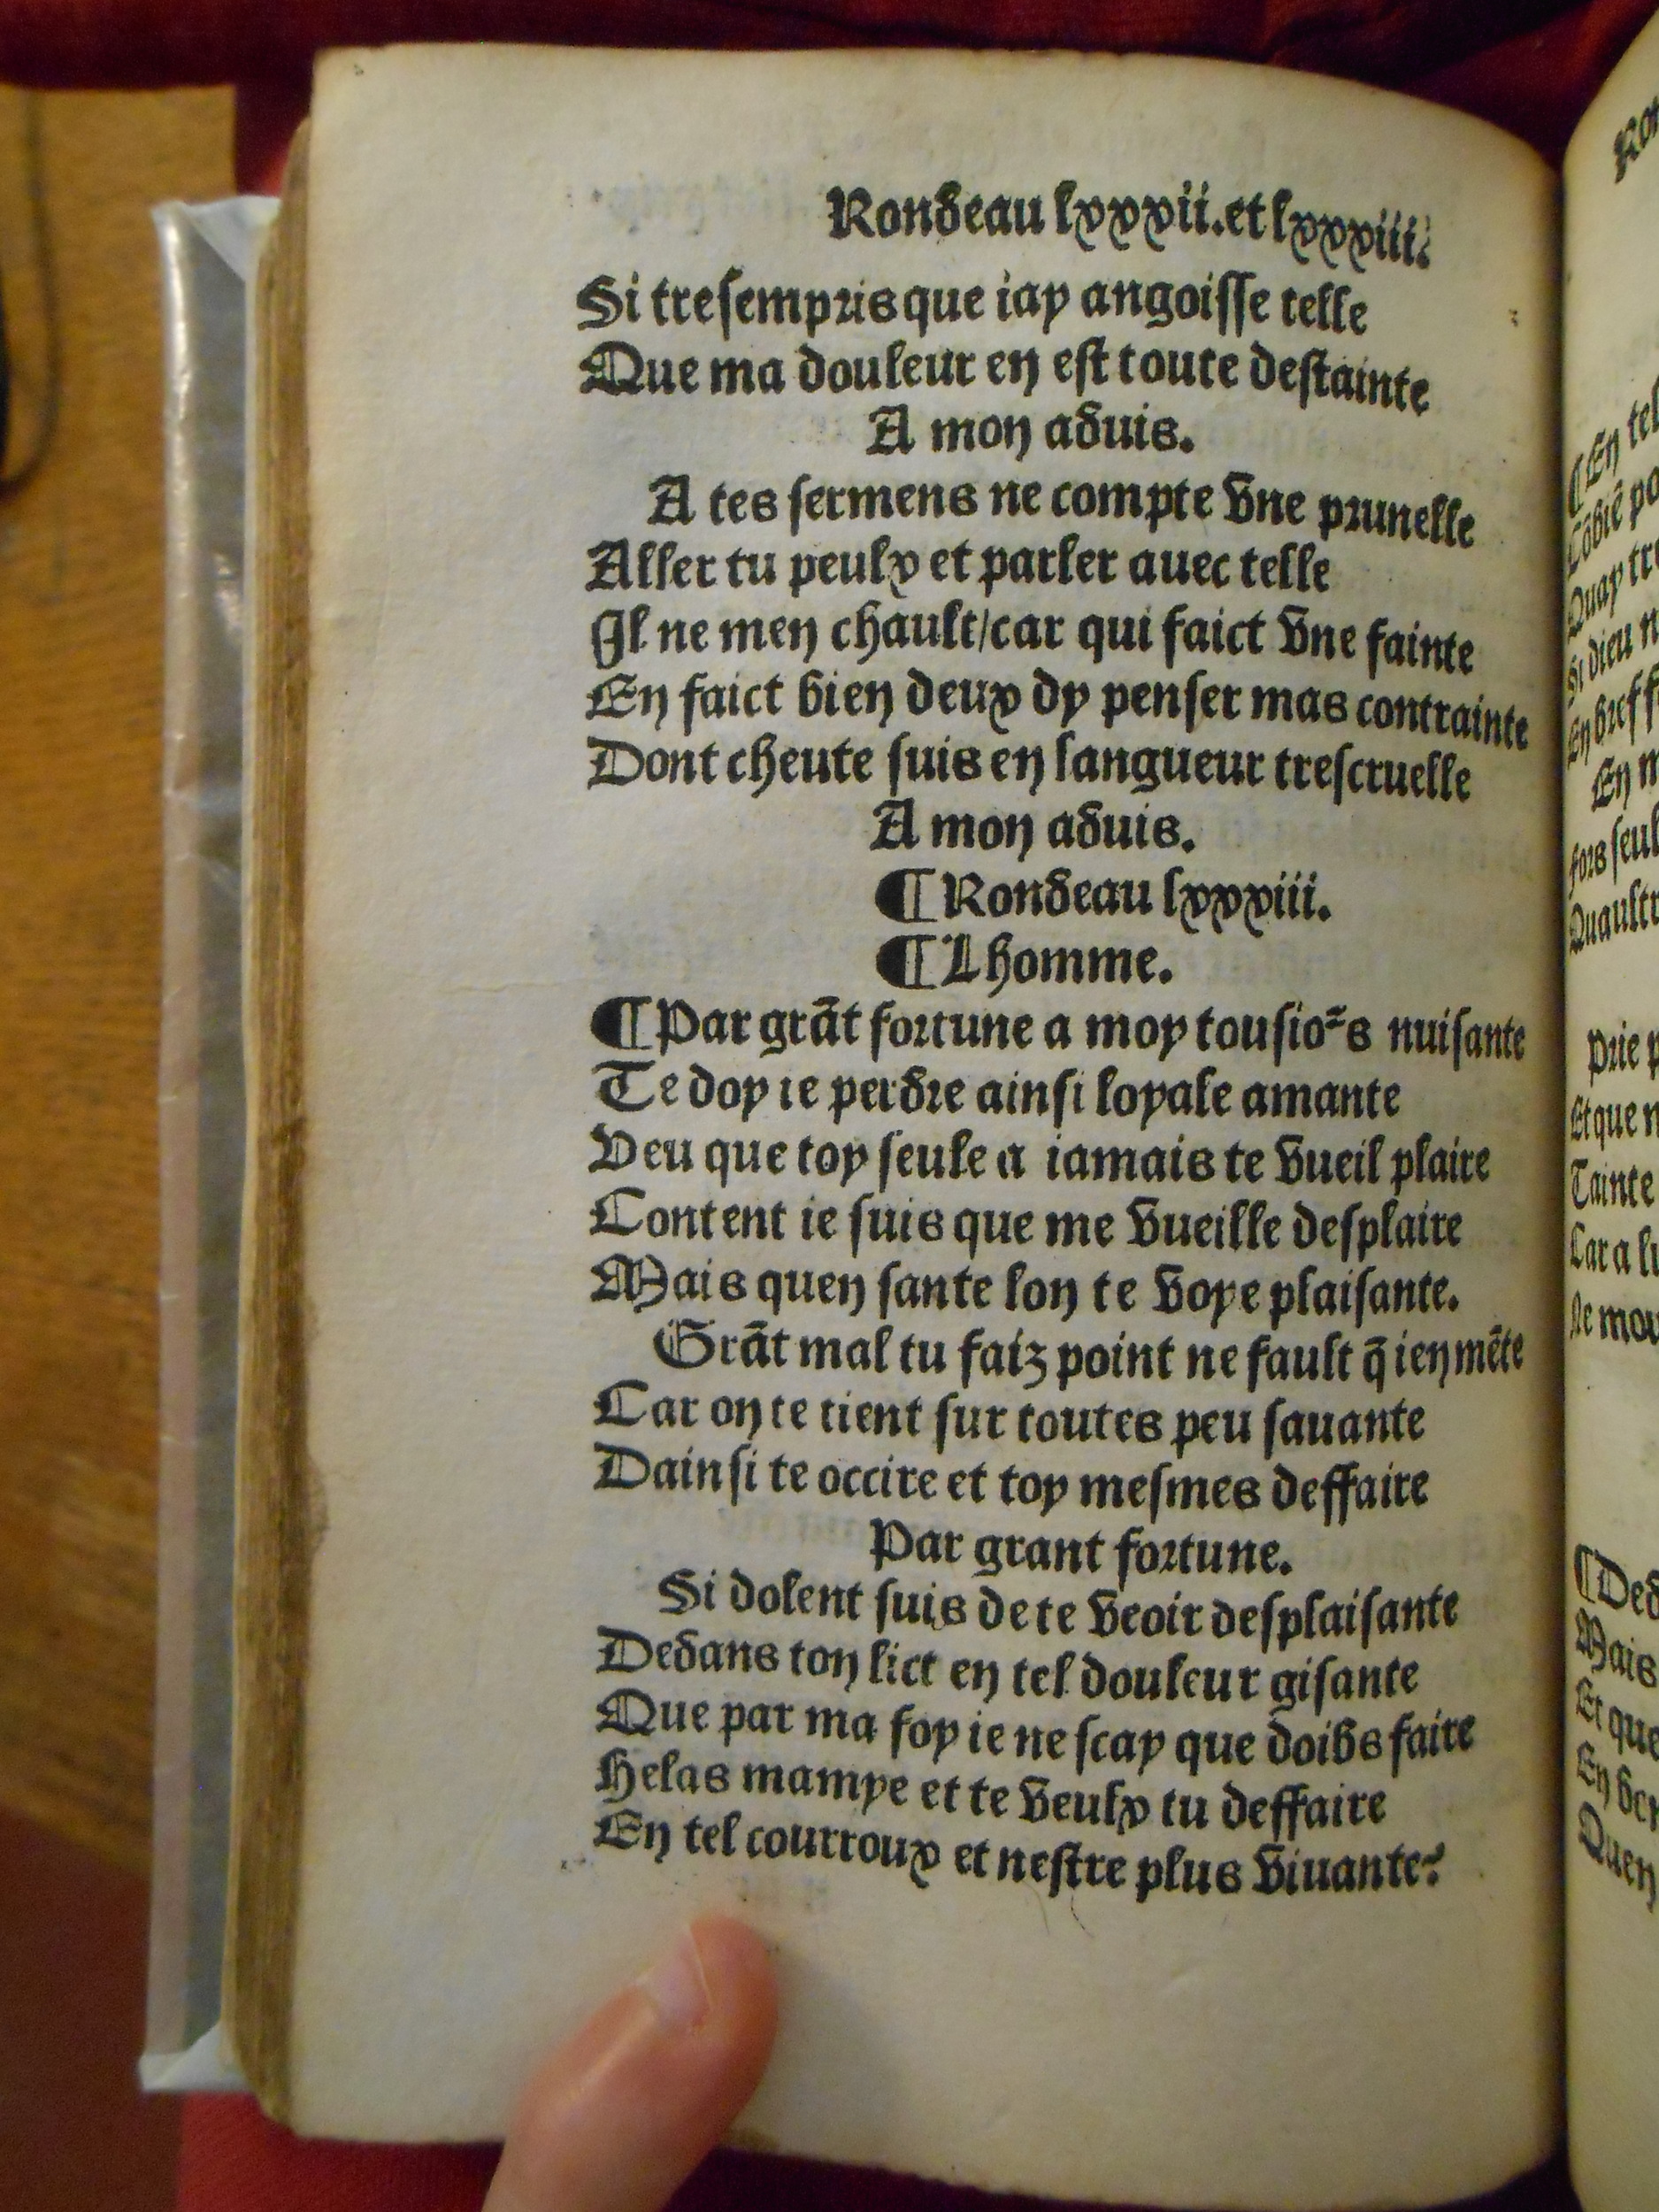 Rondeau lxxxii. et lxxxiii.
Si tresempris que iay angoisse telle
Que ma douleur en est toute destainte
A mon aduis.
A tes sermens ne compte vne prunelle
Aller tu peulx et parler auec telle
Il ne men chault/car qui faict vne fainte
En faict bien deux dy penser mas contrainte
Dont cheute suis en langueur trescruelle
A mon aduis.
¶ Rondeau lxxxiii.
¶ Lhomme.
¶ Par grāt fortune a moy tousioᷣs nuisante
Te doy ie perdre ainsi loyale amante
Veu que toy seule a iamais te vueil plaire
Content ie suis que me vueille desplaire
Mais quen sante lon te voye plaisante.
Grāt mal tu faiz point ne fault q̄ ien mēte
Car on te tient sur toutes peu sauante
Dainsi te occire et toy mesmes deffaire
Par grant fortune.
Si dolent suis de te veoir desplaisante
Dedans ton lict en tel douleur gisante
Que par ma foy ie ne scay que doibs faire
Helas mamye et te veulx tu deffaire
En tel courroux et nestre plus viuante?
¶ En tel
Quay
Si dieu
En bref
En
fors seul
Quaultr
Prie
Et que
Tainte
Car a
Ne mou
¶ Ded
Mais
Et que
En
Quen